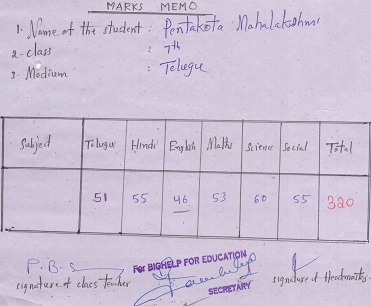 MARKS MEMO
1. Name of the student : Pentakota Mahalakshmi
2. class : 7th
3. Medium : Telugu
Subject Telugu Hindi English Maths Science Social Total
51 55 46 53 60 55 320
P.B.S
For BIGHELP FOR EDUCATION
signature of class teacher
SECRETARY
signature of Headmaster